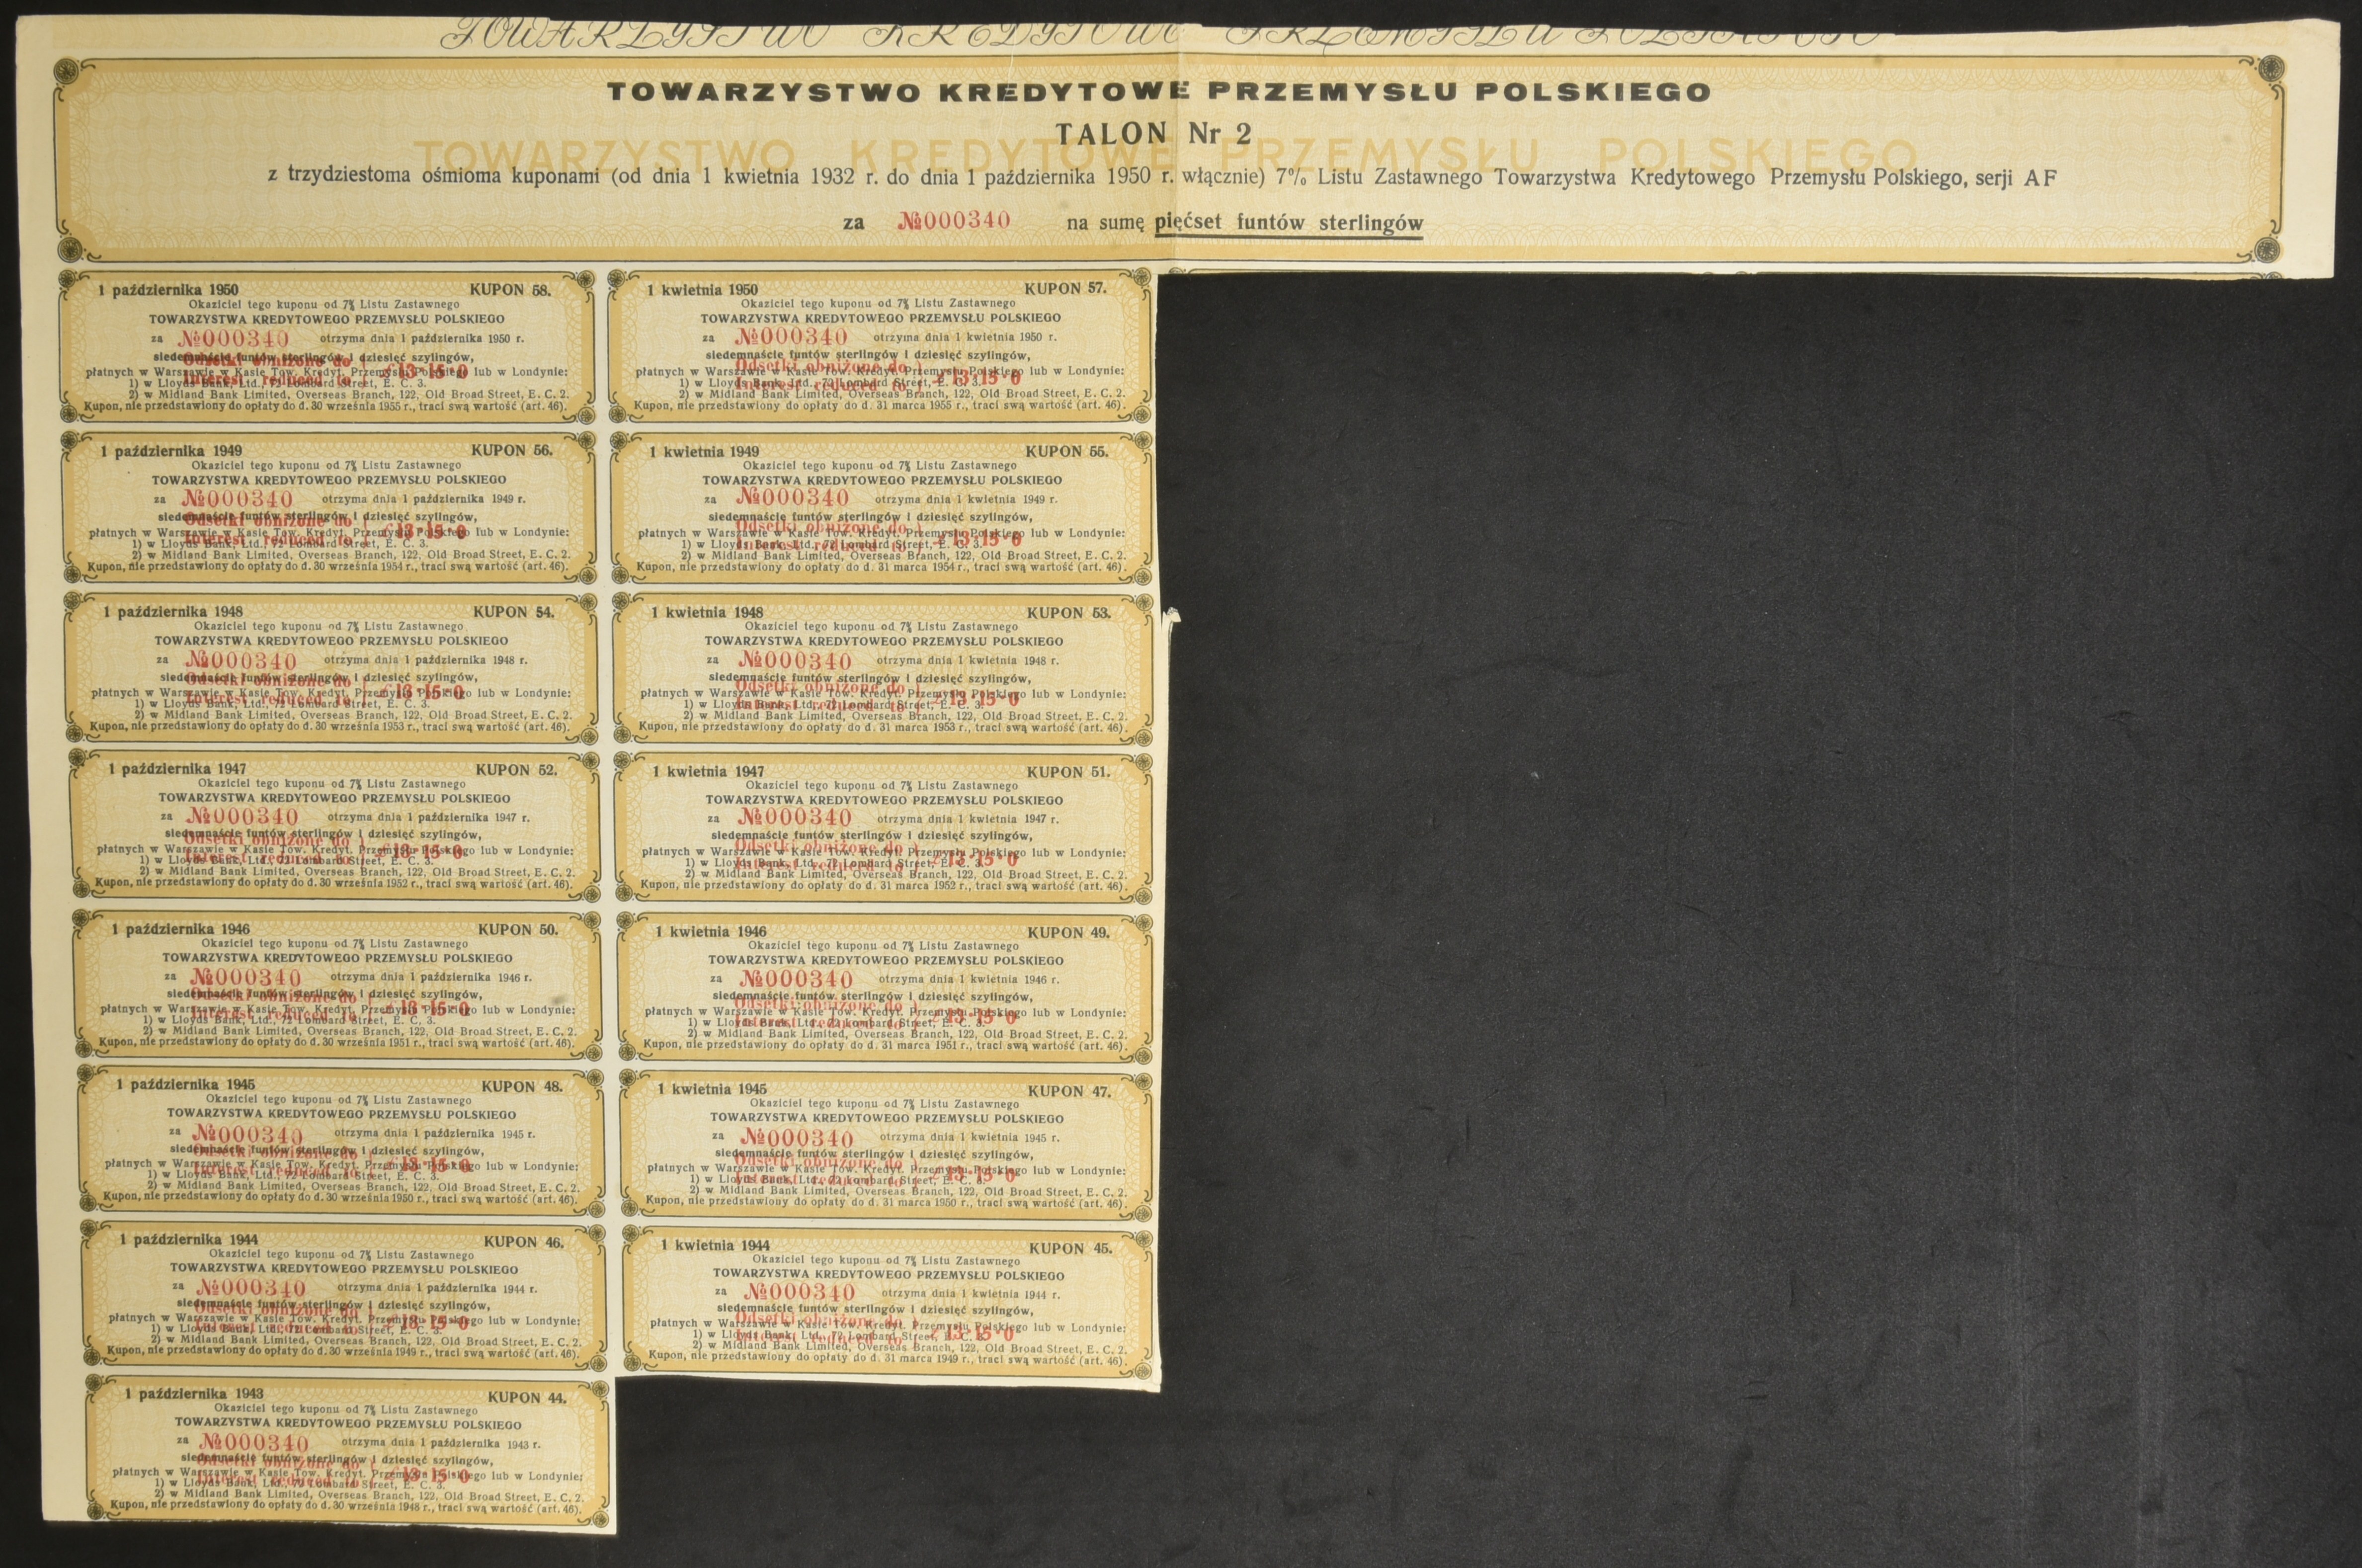 TOWARZYSTWO KREDYTOWE PRZEMYSŁU POLSKIEGO
TOWARZYSTWO KREDYTOWE PRZEMYSŁU POLSKIEGO
TALON Nr 2
TOWARZYSTWO KREDYTOWE PRZEMYSŁU POLSKIEGO
z trzydziestoma ośmioma kuponami (od dnia 1 kwietnia 1932 r. do dnia 1 października 1950 r. włącznie) 7% Listu Zastawnego Towarzystwa Kredytowego Przemysłu Polskiego, serji AF
za №000340 na sumę pięćset funtów sterlingów
1 października 1950 KUPON 58.
Okaziciel tego kuponu od 7% Listu Zastawnego
TOWARZYSTWA KREDYTOWEGO PRZEMYSŁU POLSKIEGO
za №000340 otrzyma dnia 1 października 1950 r.
siedemnaście funtów sterlingów i dziesięć szylingów,
Odsetki obniżone do
Interest reduced to £ 13·15·0
płatnych w Warszawie w Kasie Tow. Kredyt. Przemysłu Polskiego lub w Londynie:
1) w Lloyds Bank, Ltd., 72 Lombard Street, E. C. 3.
2) w Midland Bank Limited, Overseas Branch, 122, Old Broad Street, E. C. 2.
Kupon, nie przedstawiony do opłaty do d. 30 września 1955 r., traci swą wartość (art. 46).
1 kwietnia 1950 KUPON 57.
Okaziciel tego kuponu od 7% Listu Zastawnego
TOWARZYSTWA KREDYTOWEGO PRZEMYSŁU POLSKIEGO
za №000340 otrzyma dnia 1 kwietnia 1950 r.
siedemnaście funtów sterlingów i dziesięć szylingów,
Odsetki obniżone do
Interest reduced to £ 13·15·0
płatnych w Warszawie w Kasie Tow. Kredyt. Przemysłu Polskiego lub w Londynie:
1) w Lloyds Bank, Ltd., 72 Lombard Street, E. C. 3.
2) w Midland Bank Limited, Overseas Branch, 122, Old Broad Street, E. C. 2.
Kupon, nie przedstawiony do opłaty do d. 31 marca 1955 r., traci swą wartość (art. 46).
1 października 1949 KUPON 56.
Okaziciel tego kuponu od 7% Listu Zastawnego
TOWARZYSTWA KREDYTOWEGO PRZEMYSŁU POLSKIEGO
za №000340 otrzyma dnia 1 października 1949 r.
siedemnaście funtów sterlingów i dziesięć szylingów,
Odsetki obniżone do
Interest reduced to £ 13·15·0
płatnych w Warszawie w Kasie Tow. Kredyt. Przemysłu Polskiego lub w Londynie:
1) w Lloyds Bank, Ltd., 72 Lombard Street, E. C. 3.
2) w Midland Bank Limited, Overseas Branch, 122, Old Broad Street, E. C. 2.
Kupon, nie przedstawiony do opłaty do d. 30 września 1954 r., traci swą wartość (art. 46).
1 kwietnia 1949 KUPON 55.
Okaziciel tego kuponu od 7% Listu Zastawnego
TOWARZYSTWA KREDYTOWEGO PRZEMYSŁU POLSKIEGO
za №000340 otrzyma dnia 1 kwietnia 1949 r.
siedemnaście funtów sterlingów i dziesięć szylingów,
Odsetki obniżone do
Interest reduced to £ 13·15·0
płatnych w Warszawie w Kasie Tow. Kredyt. Przemysłu Polskiego lub w Londynie:
1) w Lloyds Bank, Ltd., 72 Lombard Street, E. C. 3.
2) w Midland Bank Limited, Overseas Branch, 122, Old Broad Street, E. C. 2.
Kupon, nie przedstawiony do opłaty do d. 31 marca 1954 r., traci swą wartość (art. 46).
1 października 1948 KUPON 54.
Okaziciel tego kuponu od 7% Listu Zastawnego
TOWARZYSTWA KREDYTOWEGO PRZEMYSŁU POLSKIEGO
za №000340 otrzyma dnia 1 października 1948 r.
siedemnaście funtów sterlingów i dziesięć szylingów,
Odsetki obniżone do
Interest reduced to £ 13·15·0
płatnych w Warszawie w Kasie Tow. Kredyt. Przemysłu Polskiego lub w Londynie:
1) w Lloyds Bank, Ltd., 72 Lombard Street, E. C. 3.
2) w Midland Bank Limited, Overseas Branch, 122, Old Broad Street, E. C. 2.
Kupon, nie przedstawiony do opłaty do d. 30 września 1953 r., traci swą wartość (art. 46).
1 kwietnia 1948 KUPON 53.
Okaziciel tego kuponu od 7% Listu Zastawnego
TOWARZYSTWA KREDYTOWEGO PRZEMYSŁU POLSKIEGO
za №000340 otrzyma dnia 1 kwietnia 1948 r.
siedemnaście funtów sterlingów i dziesięć szylingów,
Odsetki obniżone do
Interest reduced to £ 13·15·0
płatnych w Warszawie w Kasie Tow. Kredyt. Przemysłu Polskiego lub w Londynie:
1) w Lloyds Bank, Ltd., 72 Lombard Street, E. C. 3.
2) w Midland Bank Limited, Overseas Branch, 122, Old Broad Street, E. C. 2.
Kupon, nie przedstawiony do opłaty do d. 31 marca 1953 r., traci swą wartość (art. 46).
1 października 1947 KUPON 52.
Okaziciel tego kuponu od 7% Listu Zastawnego
TOWARZYSTWA KREDYTOWEGO PRZEMYSŁU POLSKIEGO
za №000340 otrzyma dnia 1 października 1947 r.
siedemnaście funtów sterlingów i dziesięć szylingów,
Odsetki obniżone do
Interest reduced to £ 13·15·0
płatnych w Warszawie w Kasie Tow. Kredyt. Przemysłu Polskiego lub w Londynie:
1) w Lloyds Bank, Ltd., 72 Lombard Street, E. C. 3.
2) w Midland Bank Limited, Overseas Branch, 122, Old Broad Street, E. C. 2.
Kupon, nie przedstawiony do opłaty do d. 30 września 1952 r., traci swą wartość (art. 46).
1 kwietnia 1947 KUPON 51.
Okaziciel tego kuponu od 7% Listu Zastawnego
TOWARZYSTWA KREDYTOWEGO PRZEMYSŁU POLSKIEGO
za №000340 otrzyma dnia 1 kwietnia 1947 r.
siedemnaście funtów sterlingów i dziesięć szylingów,
Odsetki obniżone do
Interest reduced to £ 13·15·0
płatnych w Warszawie w Kasie Tow. Kredyt. Przemysłu Polskiego lub w Londynie:
1) w Lloyds Bank, Ltd., 72 Lombard Street, E. C. 3.
2) w Midland Bank Limited, Overseas Branch, 122, Old Broad Street, E. C. 2.
Kupon, nie przedstawiony do opłaty do d. 31 marca 1952 r., traci swą wartość (art. 46).
1 października 1946 KUPON 50.
Okaziciel tego kuponu od 7% Listu Zastawnego
TOWARZYSTWA KREDYTOWEGO PRZEMYSŁU POLSKIEGO
za №000340 otrzyma dnia 1 października 1946 r.
siedemnaście funtów sterlingów i dziesięć szylingów,
Odsetki obniżone do
Interest reduced to £ 13·15·0
płatnych w Warszawie w Kasie Tow. Kredyt. Przemysłu Polskiego lub w Londynie:
1) w Lloyds Bank, Ltd., 72 Lombard Street, E. C. 3.
2) w Midland Bank Limited, Overseas Branch, 122, Old Broad Street, E. C. 2.
Kupon, nie przedstawiony do opłaty do d. 30 września 1951 r., traci swą wartość (art. 46).
1 kwietnia 1946 KUPON 49.
Okaziciel tego kuponu od 7% Listu Zastawnego
TOWARZYSTWA KREDYTOWEGO PRZEMYSŁU POLSKIEGO
za №000340 otrzyma dnia 1 kwietnia 1946 r.
siedemnaście funtów sterlingów i dziesięć szylingów,
Odsetki obniżone do
Interest reduced to £ 13·15·0
płatnych w Warszawie w Kasie Tow. Kredyt. Przemysłu Polskiego lub w Londynie:
1) w Lloyds Bank, Ltd., 72 Lombard Street, E. C. 3.
2) w Midland Bank Limited, Overseas Branch, 122, Old Broad Street, E. C. 2.
Kupon, nie przedstawiony do opłaty do d. 31 marca 1951 r., traci swą wartość (art. 46).
1 października 1945 KUPON 48.
Okaziciel tego kuponu od 7% Listu Zastawnego
TOWARZYSTWA KREDYTOWEGO PRZEMYSŁU POLSKIEGO
za №000340 otrzyma dnia 1 października 1945 r.
siedemnaście funtów sterlingów i dziesięć szylingów,
Odsetki obniżone do
Interest reduced to £ 13·15·0
płatnych w Warszawie w Kasie Tow. Kredyt. Przemysłu Polskiego lub w Londynie:
1) w Lloyds Bank, Ltd., 72 Lombard Street, E. C. 3.
2) w Midland Bank Limited, Overseas Branch, 122, Old Broad Street, E. C. 2.
Kupon, nie przedstawiony do opłaty do d. 30 września 1950 r., traci swą wartość (art. 46).
1 kwietnia 1945 KUPON 47.
Okaziciel tego kuponu od 7% Listu Zastawnego
TOWARZYSTWA KREDYTOWEGO PRZEMYSŁU POLSKIEGO
za №000340 otrzyma dnia 1 kwietnia 1945 r.
siedemnaście funtów sterlingów i dziesięć szylingów,
Odsetki obniżone do
Interest reduced to £ 13·15·0
płatnych w Warszawie w Kasie Tow. Kredyt. Przemysłu Polskiego lub w Londynie:
1) w Lloyds Bank, Ltd., 72 Lombard Street, E. C. 3.
2) w Midland Bank Limited, Overseas Branch, 122, Old Broad Street, E. C. 2.
Kupon, nie przedstawiony do opłaty do d. 31 marca 1950 r., traci swą wartość (art. 46).
1 października 1944 KUPON 46.
Okaziciel tego kuponu od 7% Listu Zastawnego
TOWARZYSTWA KREDYTOWEGO PRZEMYSŁU POLSKIEGO
za №000340 otrzyma dnia 1 października 1944 r.
siedemnaście funtów sterlingów i dziesięć szylingów,
Odsetki obniżone do
Interest reduced to £ 13·15·0
płatnych w Warszawie w Kasie Tow. Kredyt. Przemysłu Polskiego lub w Londynie:
1) w Lloyds Bank, Ltd., 72 Lombard Street, E. C. 3.
2) w Midland Bank Limited, Overseas Branch, 122, Old Broad Street, E. C. 2.
Kupon, nie przedstawiony do opłaty do d. 30 września 1949 r., traci swą wartość (art. 46).
1 kwietnia 1944 KUPON 45.
Okaziciel tego kuponu od 7% Listu Zastawnego
TOWARZYSTWA KREDYTOWEGO PRZEMYSŁU POLSKIEGO
za №000340 otrzyma dnia 1 kwietnia 1944 r.
siedemnaście funtów sterlingów i dziesięć szylingów,
Odsetki obniżone do
Interest reduced to £ 13·15·0
płatnych w Warszawie w Kasie Tow. Kredyt. Przemysłu Polskiego lub w Londynie:
1) w Lloyds Bank, Ltd., 72 Lombard Street, E. C. 3.
2) w Midland Bank Limited, Overseas Branch, 122, Old Broad Street, E. C. 2.
Kupon, nie przedstawiony do opłaty do d. 31 marca 1949 r., traci swą wartość (art. 46).
1 października 1943 KUPON 44.
Okaziciel tego kuponu od 7% Listu Zastawnego
TOWARZYSTWA KREDYTOWEGO PRZEMYSŁU POLSKIEGO
za №000340 otrzyma dnia 1 października 1943 r.
siedemnaście funtów sterlingów i dziesięć szylingów,
Odsetki obniżone do
Interest reduced to £ 13·15·0
płatnych w Warszawie w Kasie Tow. Kredyt. Przemysłu Polskiego lub w Londynie:
1) w Lloyds Bank, Ltd., 72 Lombard Street, E. C. 3.
2) w Midland Bank Limited, Overseas Branch, 122, Old Broad Street, E. C. 2.
Kupon, nie przedstawiony do opłaty do d. 30 września 1948 r., traci swą wartość (art. 46).